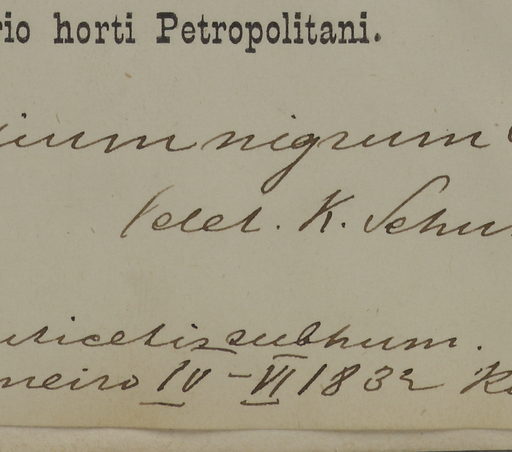 rio horti Petropolitani.
ium nigrum
(det. K. Schu
uticetis subhum.
neiro IV - VI 1832